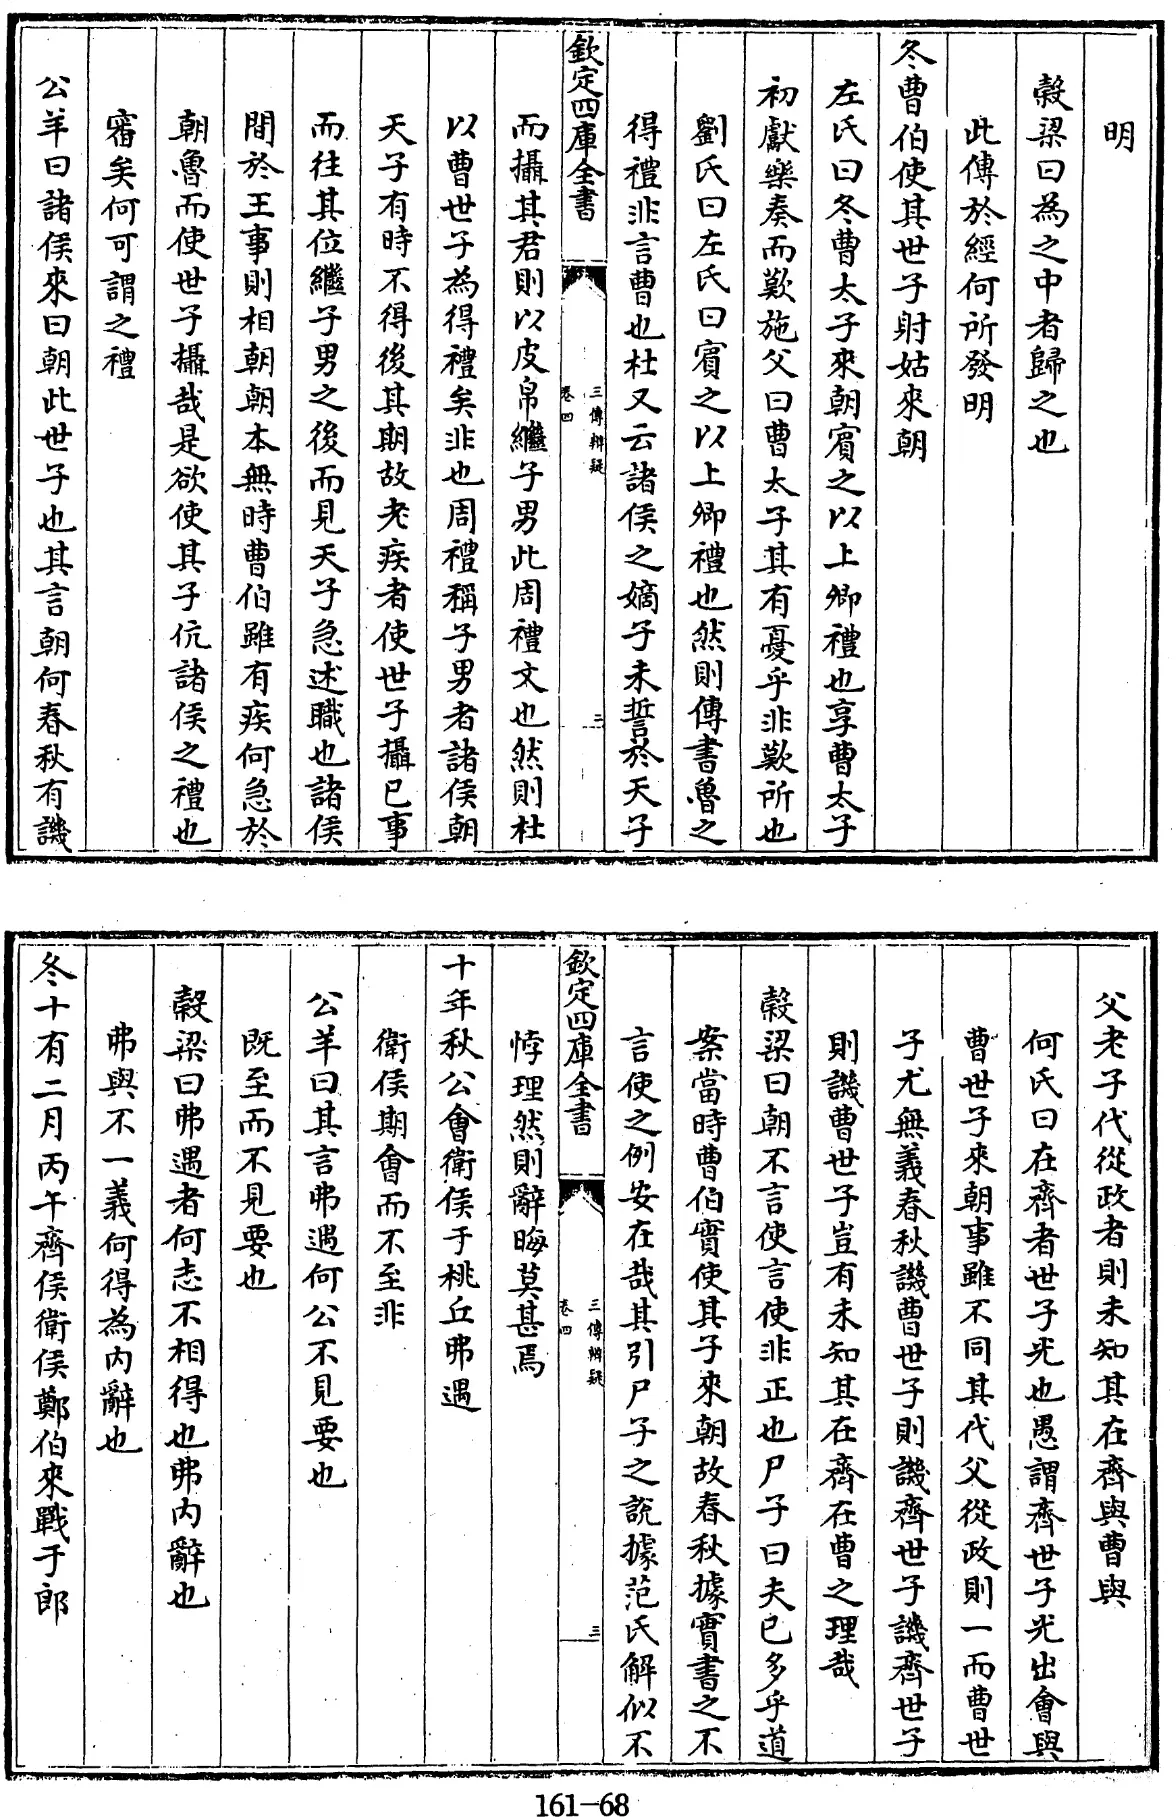 明
穀梁曰為之中者歸之也
此傳於經何所發明
冬曹伯使其世子射姑來朝
左氏曰冬曹太子來朝賓之以上卿禮也享曹太子
初獻樂奏而歎施父曰曹太子其有憂乎非歎所也
劉氏曰左氏曰賓之以上卿禮也然則傳書魯之
得禮非言曹也杜又云諸侯之嫡子未誓於天子
欽定四庫全書
三傳辨疑
卷四
三
而攝其君則以皮帛繼子男此周禮文也然則杜
以曹世子為得禮矣非也周禮稱子男者諸侯朝
天子有時不得後其期故老疾者使世子攝已事
而往其位繼子男之後而見天子急述職也諸侯
間於王事則相朝朝本無時曹伯雖有疾何急於
朝魯而使世子攝哉是欲使其子伉諸侯之禮也
𤯝矣何可謂之禮
公羊曰諸侯來曰朝此世子也其言朝何春秋有譏
父老子代從政者則未知其在齊與曹與
何氏曰在齊者世子光也愚謂齊世子光出會與
曹世子來朝事雖不同其代父從政則一而曹世
子尤無義春秋譏曹世子則譏齊世子譏齊世子
則譏曹世子豈有未知其在齊在曹之理哉
穀梁曰朝不言使言使非正也尸子曰夫已多乎道
案當時曹伯實使其子來朝故春秋據實書之不
言使之例安在哉其引尸子之說據范氏解似不
欽定四庫全書
三傳辨疑
卷四
三
悖理然則辭晦莫甚焉
十年秋公會衛侯于桃丘弗遇
衛侯期會而不至非
公羊曰其言弗遇何公不見要也
既至而不見要也
穀梁曰弗遇者何志不相得也弗內辭也
弗與不一義何得為內辭也
冬十有二月丙午齊侯衛侯鄭伯來戰于郎
161-68